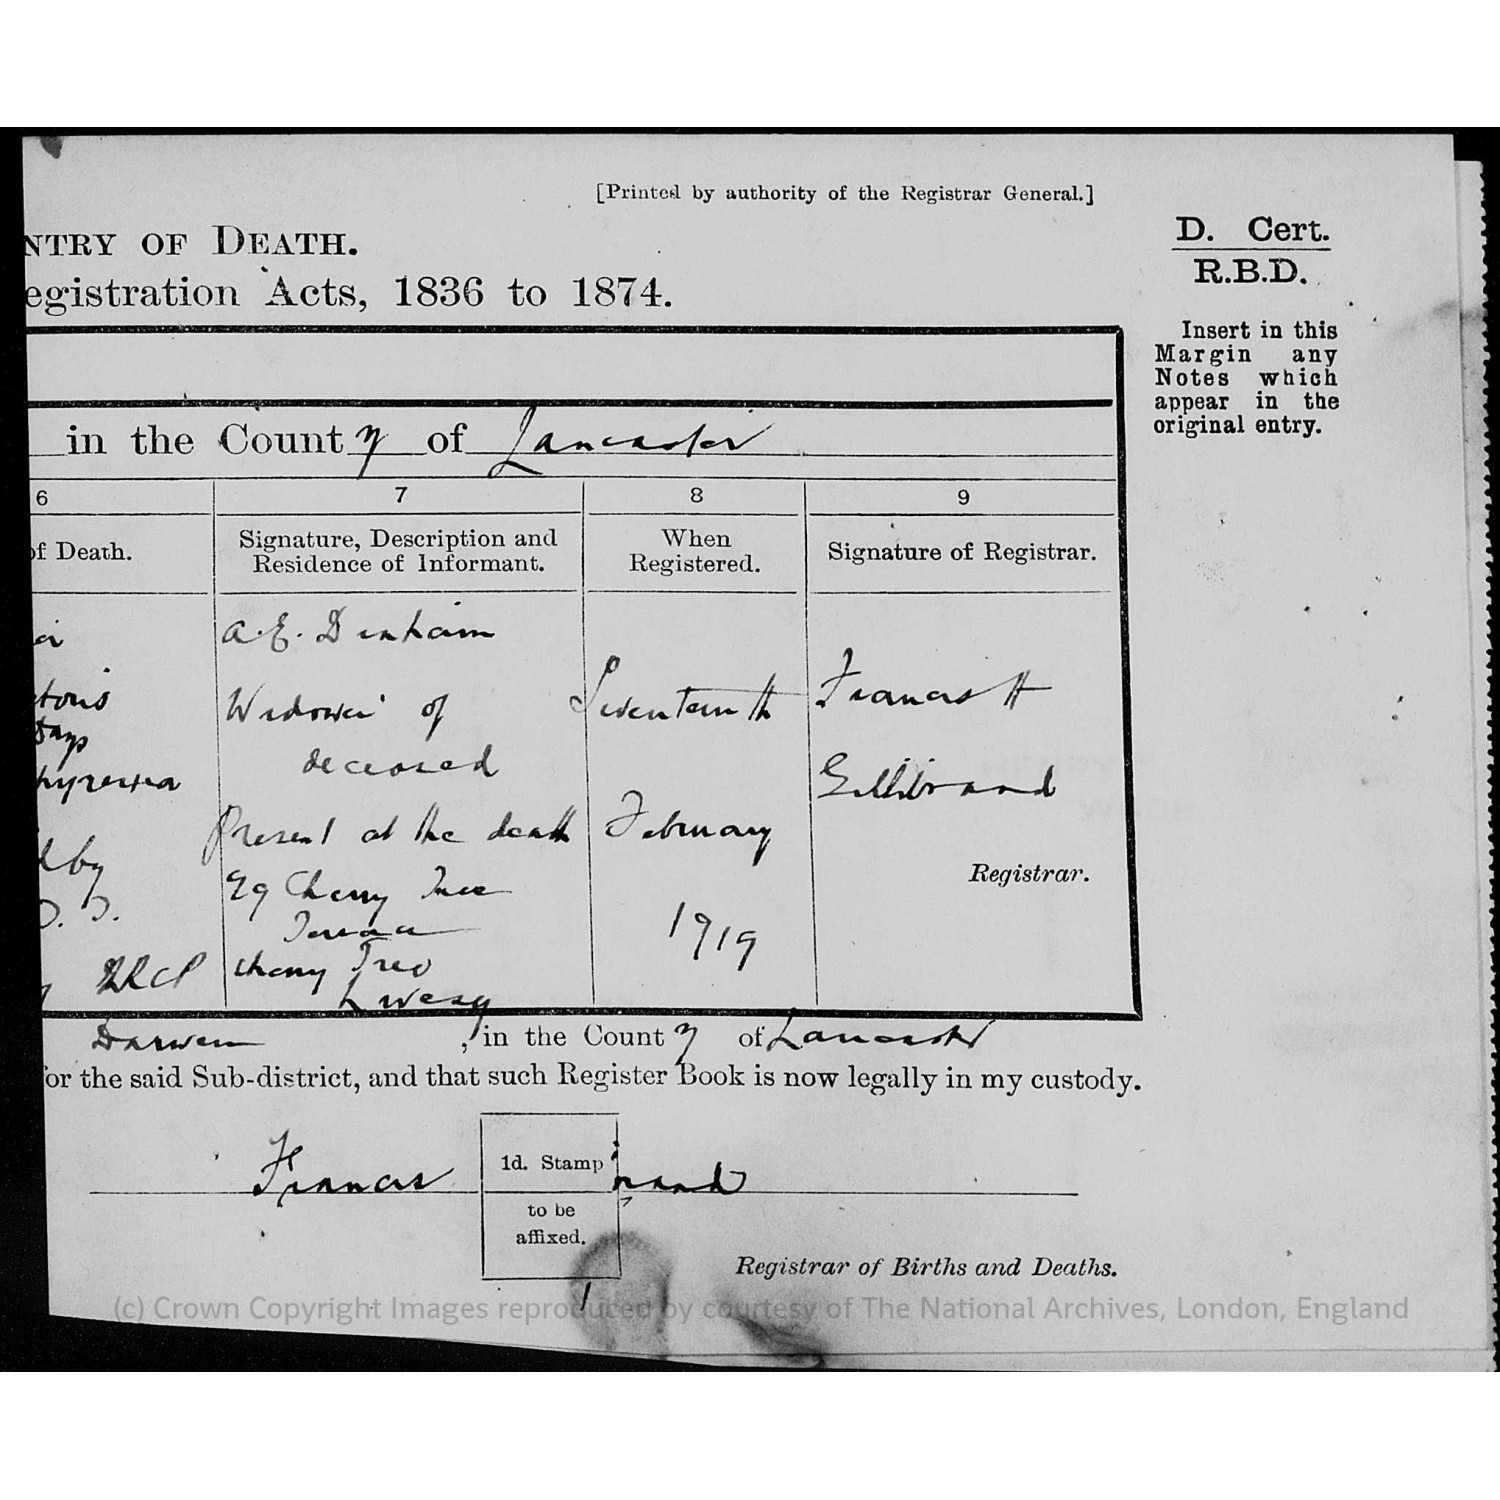 [Printed by authority of the Registrar General.]
D. Cert.
R.B.D.
NTRY OF DEATH.
egistration Acts, 1836 to 1874.
Insert in this
Margin any
Notes which
appear in the
original entry.
in the County of Lancaster
6 7 8 9
of Death.
Signature, Description and
Residence of Informant.
When
Registered.
Signature of Registrar.
A. E. Denham
Widower of
deceased
Present at the death
29 Cherry Tree
Terrace
Cherry Tree
Livesey
Seventeenth
February
1919
Francis H
Gillibrand
Registrar.
days
pyrexia
d by
MRCP
Darwen, in the County of Lancaster
for the said Sub-district, and that such Register Book is now legally in my custody.
Francis brand
1d. Stamp
to be
affixed.
Registrar of Births and Deaths.
(c) Crown Copyright Images reproduced by courtesy of The National Archives, London, England